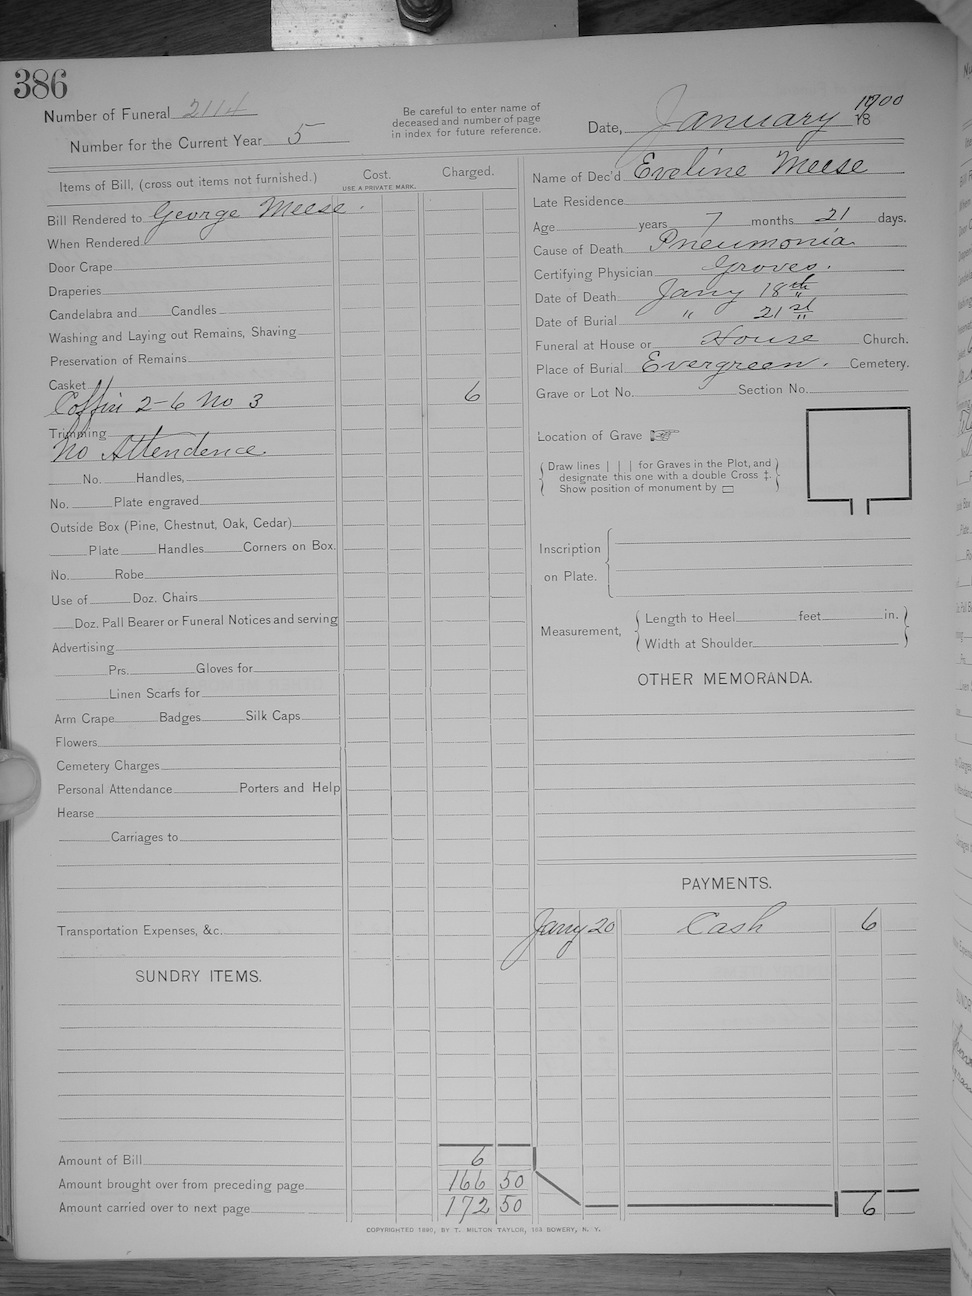 386
Number of Funeral 2114
Number for the Current Year 5
Be careful to enter name of
deceased and number of page
in index for future reference.
Date, January 1900
18
Items of Bill, (cross out items not furnished.)
Cost.
USE A PRIVATE MARK.
Charged.
Bill Rendered to George Meese.
When Rendered
Door Crape
Draperies
Candelabra and Candles
Washing and Laying out Remains, Shaving
Preservation of Remains
Casket
Coffin 2-6 No 3 6
Trimming
No Attendence.
No. Handles,
No. Plate engraved
Outside Box (Pine, Chestnut, Oak, Cedar)
Plate Handles Corners on Box.
No. Robe
Use of Doz. Chairs
Doz. Pall Bearer or Funeral Notices and serving
Advertising
Prs. Gloves for
Linen Scarfs for
Arm Crape Badges Silk Caps
Flowers
Cemetery Charges
Personal Attendance Porters and Help
Hearse
Carriages to
Transportation Expenses, &c.
SUNDRY ITEMS.
Amount of Bill 6
Amount brought over from preceding page 166 50
Amount carried over to next page 172 50
Name of Dec'd Eveline Meese
Late Residence
Age years 7 months 21 days.
Cause of Death Pneumonia
Certifying Physician Groves.
Date of Death Jany 18th
Date of Burial " 21st
Funeral at House or House Church.
Place of Burial Evergreen. Cemetery.
Grave or Lot No. Section No.
Location of Grave ☞
Draw lines | | | for Graves in the Plot, and
designate this one with a double Cross ‡.
Show position of monument by ▭
Inscription
on Plate.
Measurement,
Length to Heel feet in.
Width at Shoulder
OTHER MEMORANDA.
PAYMENTS.
Jany 20 Cash 6
6
COPYRIGHTED 1890, BY T. MILTON TAYLOR, 193 BOWERY, N. Y.